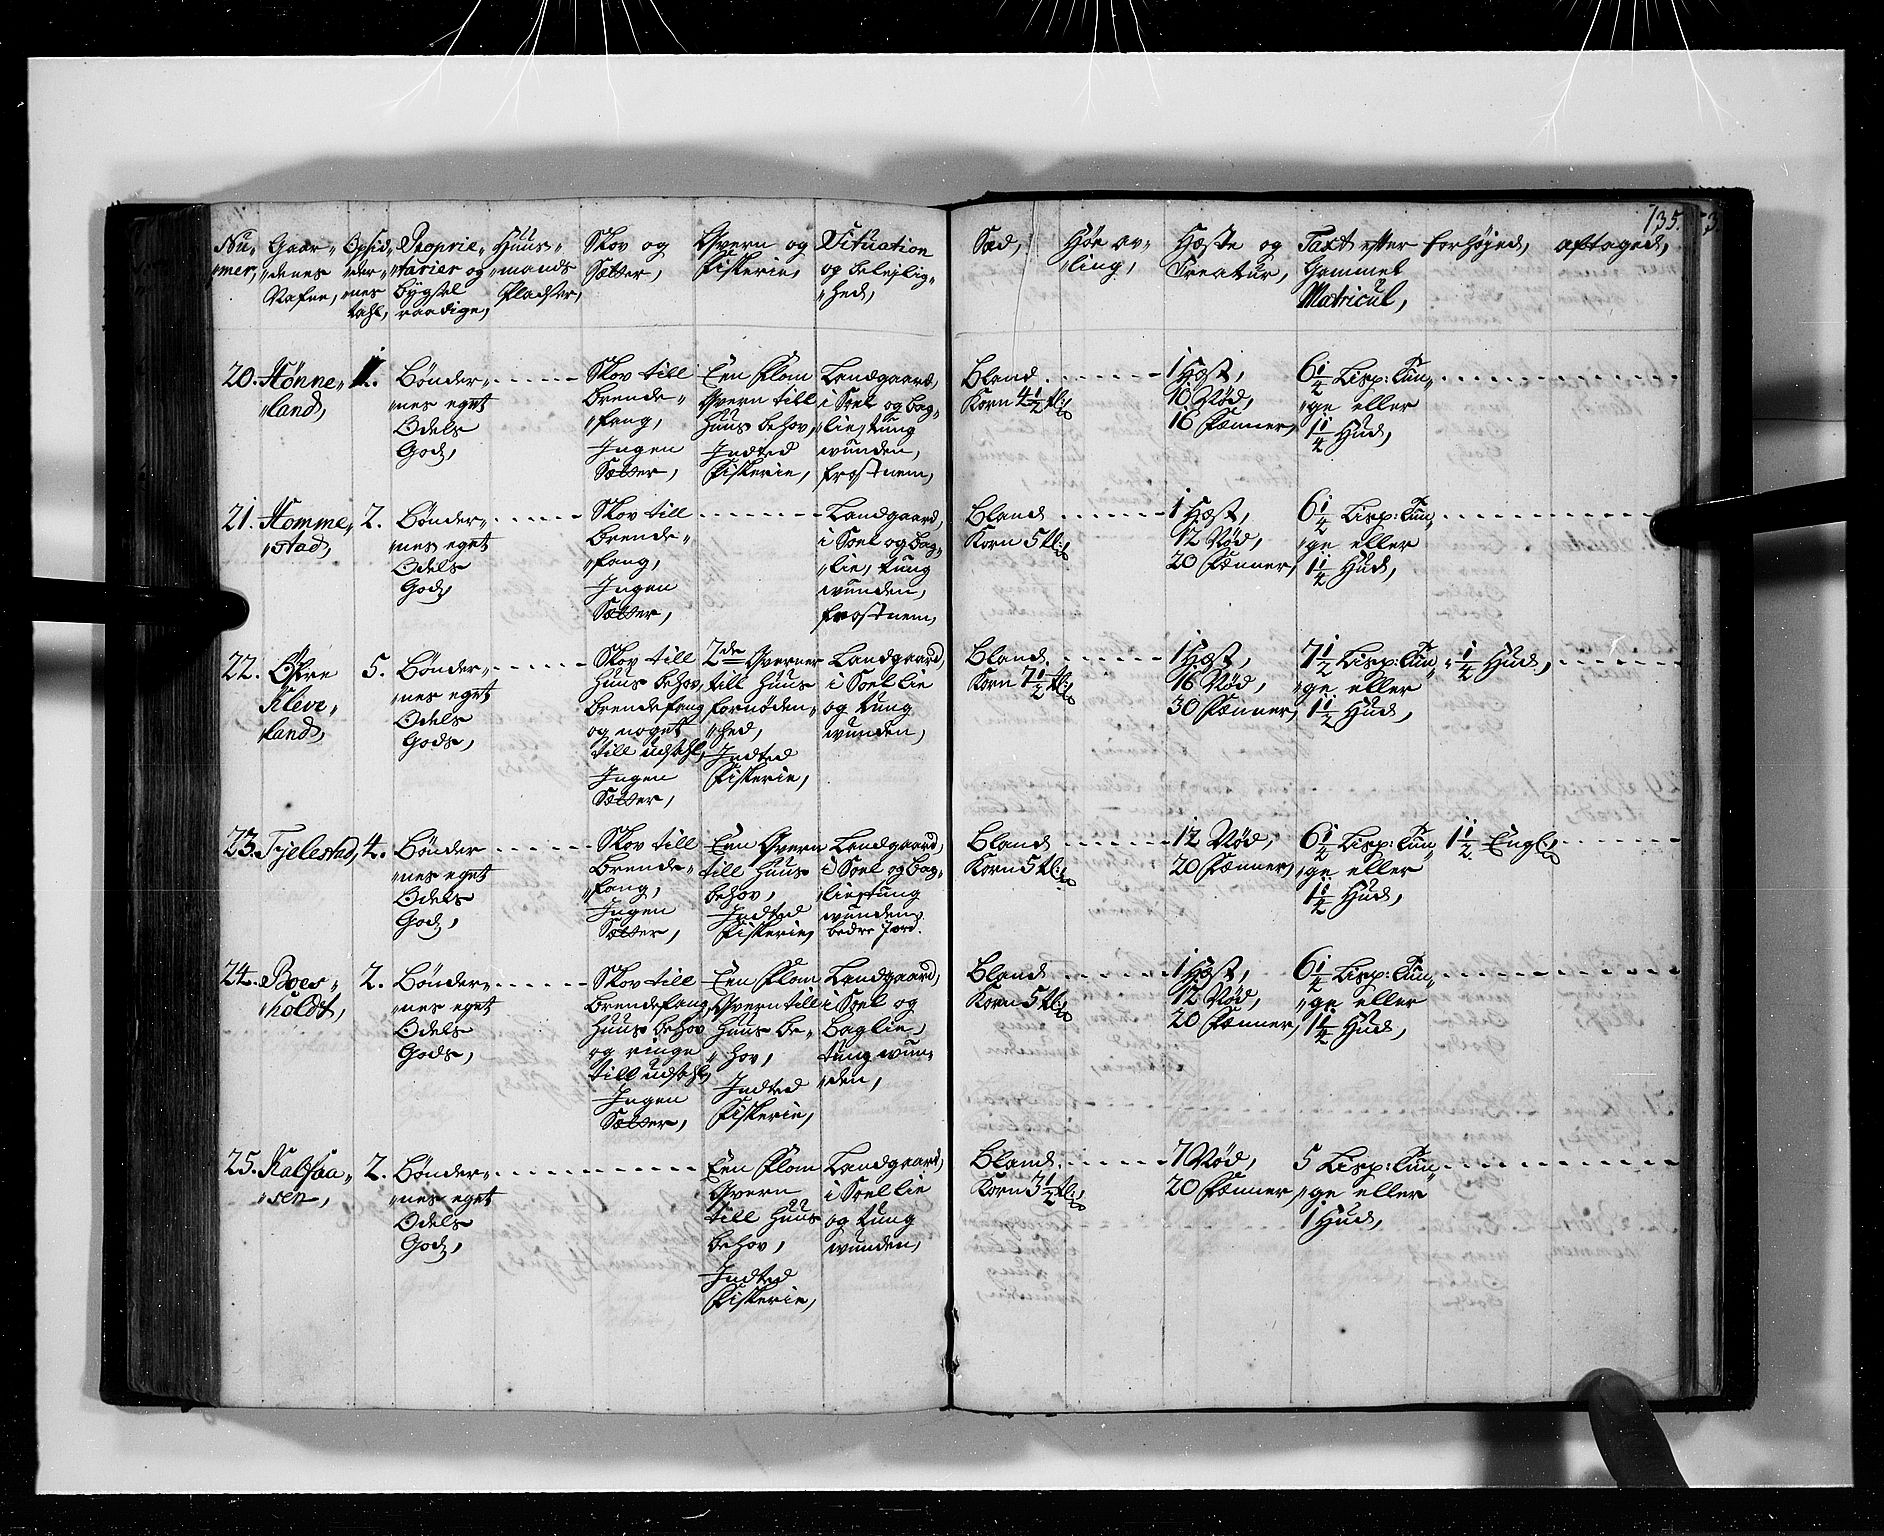 135.
Nu„ mer,
Gaar„ „denes Nafne,
Opsid„ „der„ „nes tahl,
Proprie„ „tarier og bÿgsel raadige,
Huus„ „mands Pladser,
Skov og Sætter,
Qvern og Fiskerie,
Situation og belejlig„ „hed,
Sæd,
Høe av„ „ling,
Hæste og Creatur,
Taxt efter Gammel Matricul,
forhøÿed,
aftaged,
20. Hønne„ „land,
1.
Bønder„ „nes eget Odels God,
Skov till brende„ „fang, Ingen Sætter,
Een Flom Qvern till Huus behov, Indted Fiskerie,
Landgaard, i Soel og bag„ „lie, tung wunden, frostnem,
Bland Korn 4½ tl:
1 Hæst, 10 Nød, 16 Fænner,
6½ Lisp: Tun„ „ge eller 1¼ Hud,
21. Homme„ „stad,
2.
Bønder„ „nes eget Odels God,
Skov till brende„ „fang, Ingen Sætter,
Landgaard, i Soel og bag„ „lie, tung wunden, frostnem,
Bland Korn 5 tl:
1 Hæst, 12 Nød, 20 Fænner,
6½ Lisp: Tun„ „ge eller 1½ Hud,
22. Øfre Kleve„ „land,
5.
Bønder„ „nes eget Odels Gods,
Skov till Huus behov, brendefang og noget till udsahl, Ingen Sætter,
2de Qverner till Huus fornøden„ „hed, Indted Fiskerie,
Landgaard, i Soel lie og tung wunden,
Bland Korn 7½ tl:
1 Hæst, 16 Nød, 30 Fænner,
7½ Lisp: Tun„ „ge eller 1½ Hud,
½ Hud,
23. Fjelestad,
4.
Bønder „nes eget Odels God,
Skov till Brende„ „fang, Ingen Sætter,
Een Qvern till Huus behov, Indted Fiskerie,
Landgaard, i Soel og bag„ lie, tung wunden, bedre Jord.
Bland Korn 5 tl:
12 Nød, 20 Fænner,
6½ Lisp: Tun„ „ge eller 1½ Hud,
1½ Engl,
24. Boes„ „holdt,
2.
Bønder„ „nes eget Odels Gods,
Skov till brendefang, Huus behov og ringe till udsahl, Ingen Sætter,
Een Flom Qvern till Huus be„ „hov, Indted Fiskerie,
Landgaard, i Soel og Baglie, tung wun„ „den,
Bland Korn 5 tl:
1 Hæst, 12 Nød, 20 Fænner,
6½ Lisp: Tun„ „ge eller 1¼ Hud,
25. Kalsaa„ „sen,
2.
Bønder„ „nes eget Odels God,
Een Flom Qvern till Huus behov, Indted Fiskerie,
Landgaard, i Soel lie og tung wunden,
Bland Korn 3½ tl:
7 Nød, 20 Fænner,
5 Lisp: Tun„ „ge eller 1 Hud,